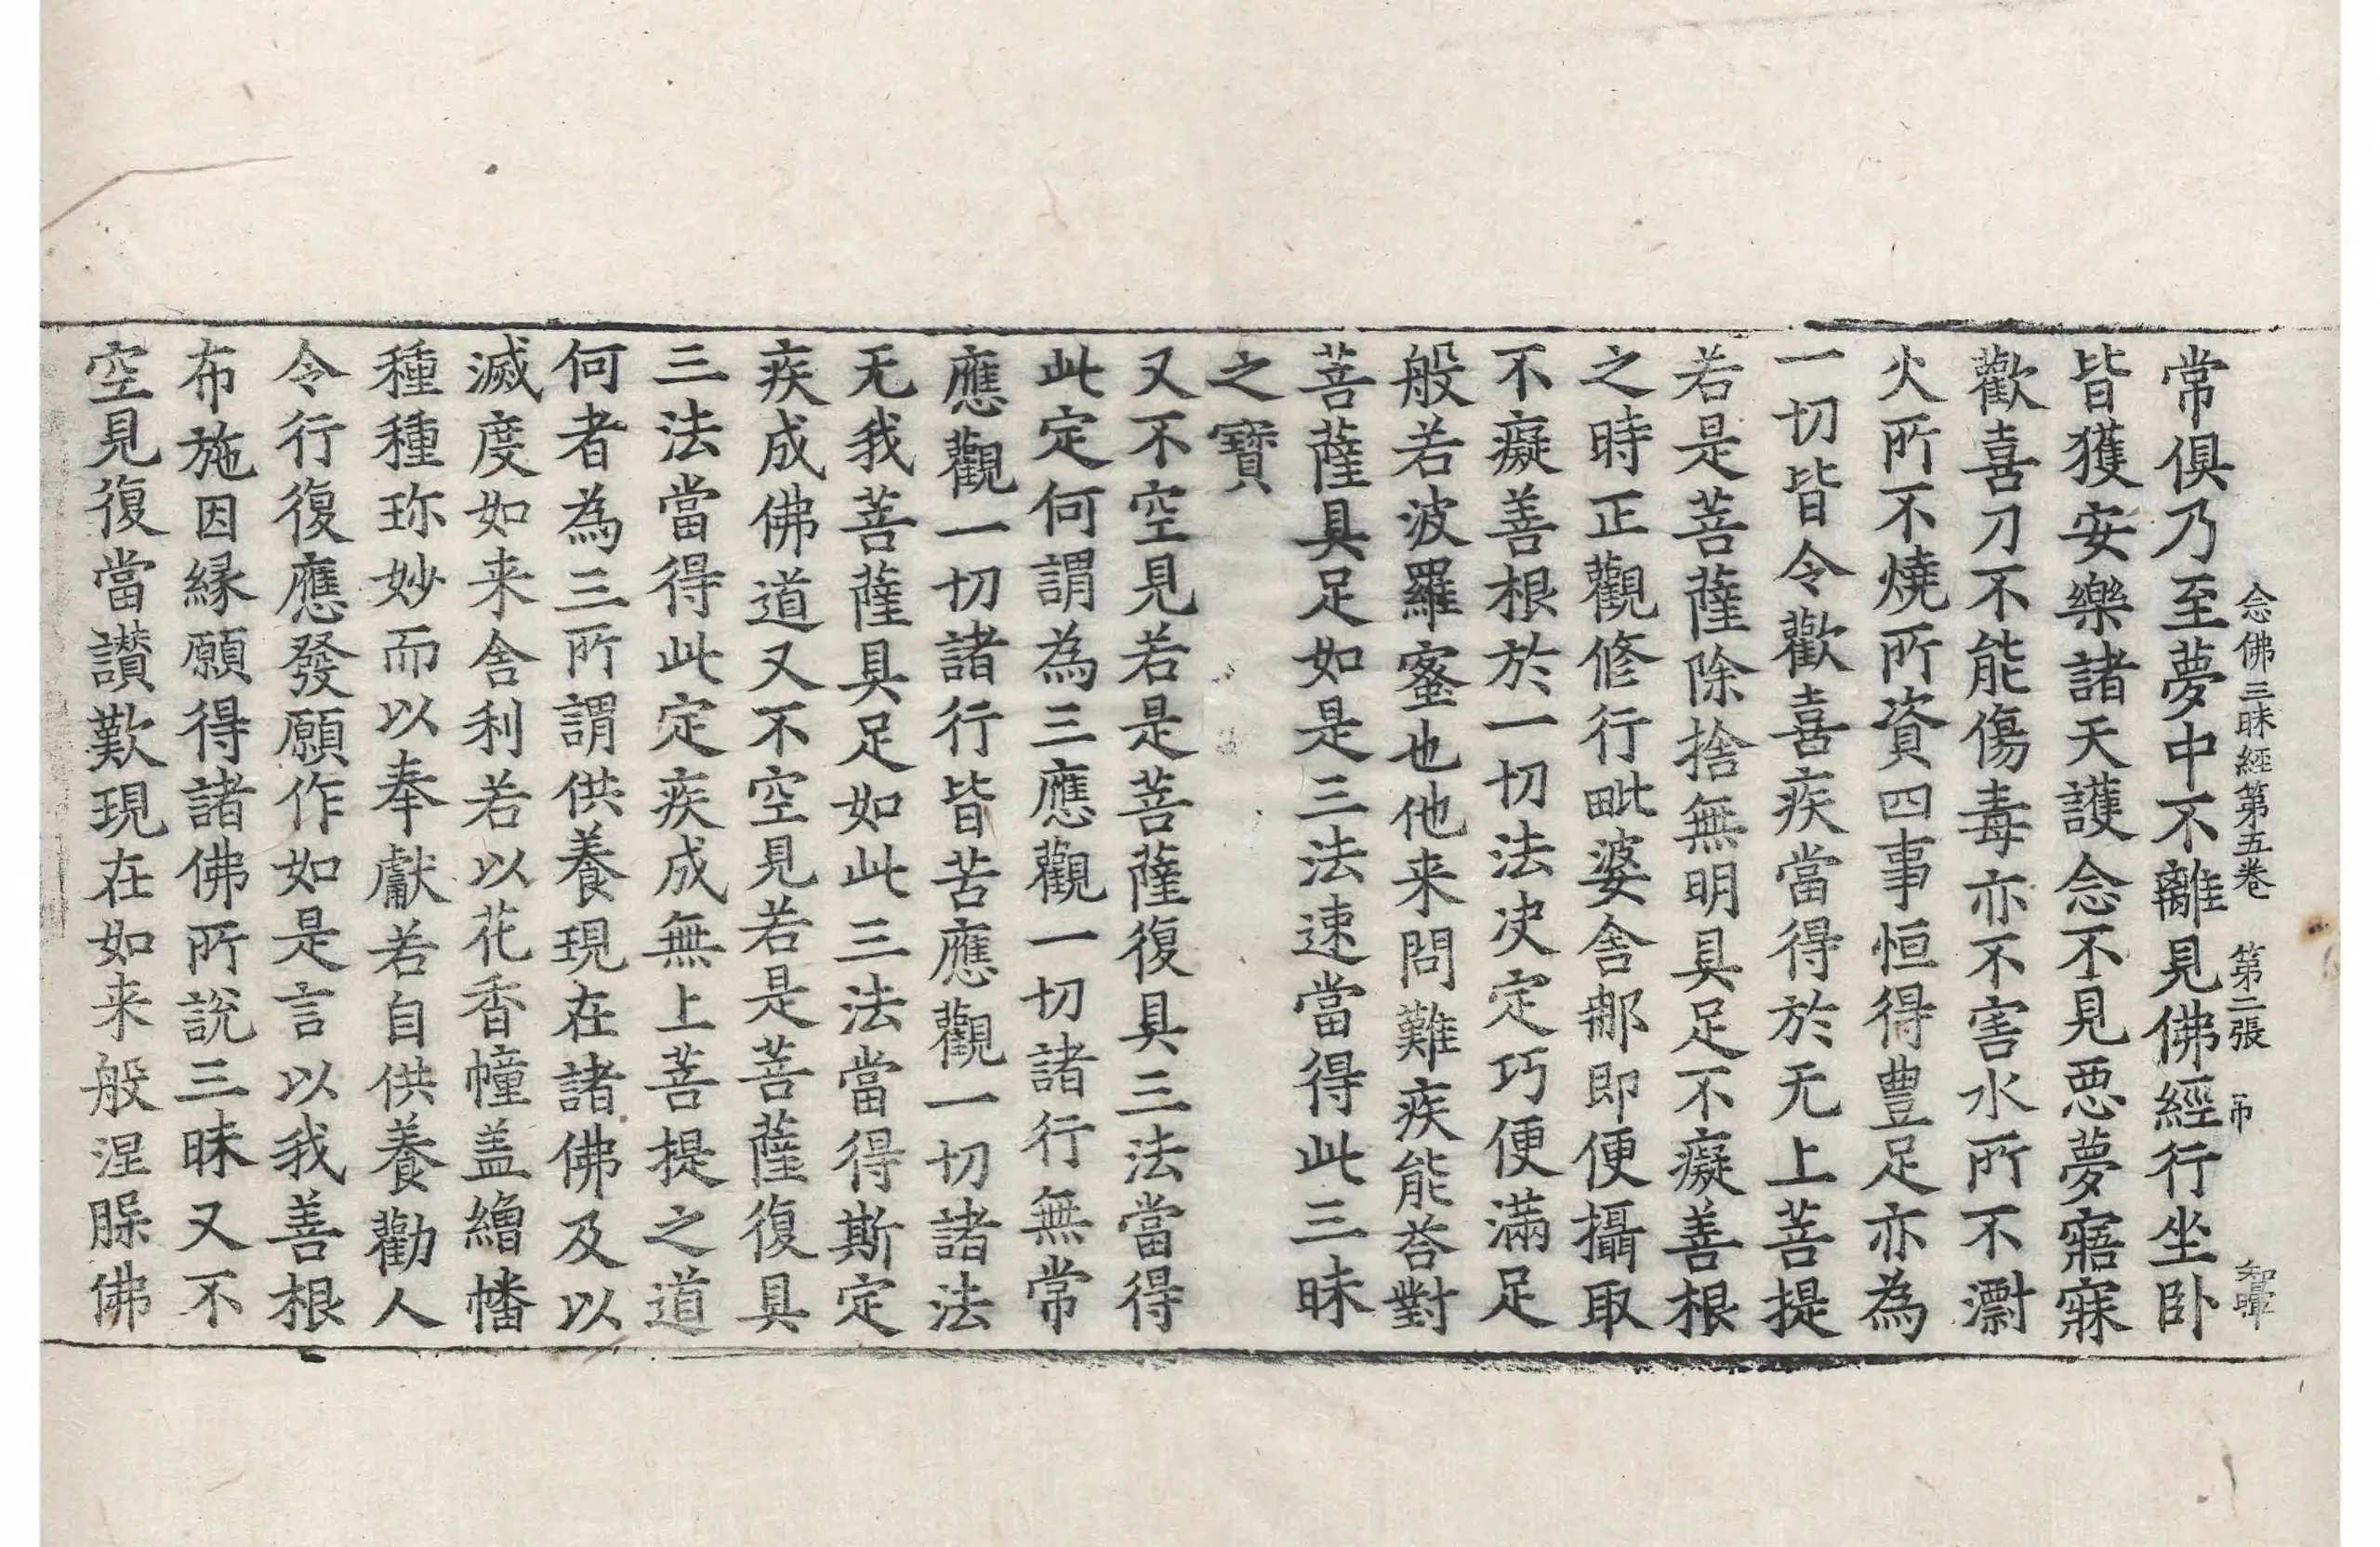 念佛三昧經第五卷 第二張 吊 智暉
常俱乃至夢中不離見佛經行坐卧
皆獲安樂諸天護念不見惡夢寤寐
歡喜刀不能傷毒亦不害水所不㵭
火所不燒所資四事恒得豊足亦為
一切皆令歡喜疾當得於无上菩提
若是菩薩除捨無明具足不癡善根
之時正觀修行毗婆舍那即便攝取
不癡善根於一切法决定巧便滿足
般若波羅蜜也他来問難疾能荅對
菩薩具足如是三法速當得此三昧
之寶
又不空見若是菩薩復具三法當得
此定何謂為三應觀一切諸行無常
應觀一切諸行皆苦應觀一切諸法
无我菩薩具足如此三法當得斯定
疾成佛道又不空見若是菩薩復具
三法當得此定疾成無上菩提之道
何者為三所謂供養現在諸佛及以
滅度如来舍利若以花香幢盖繒幡
種種珎妙而以奉獻若自供養勸人
令行復應發願作如是言以我善根
布施因縁願得諸佛所說三昧又不
空見復當讃歎現在如来般涅槃佛